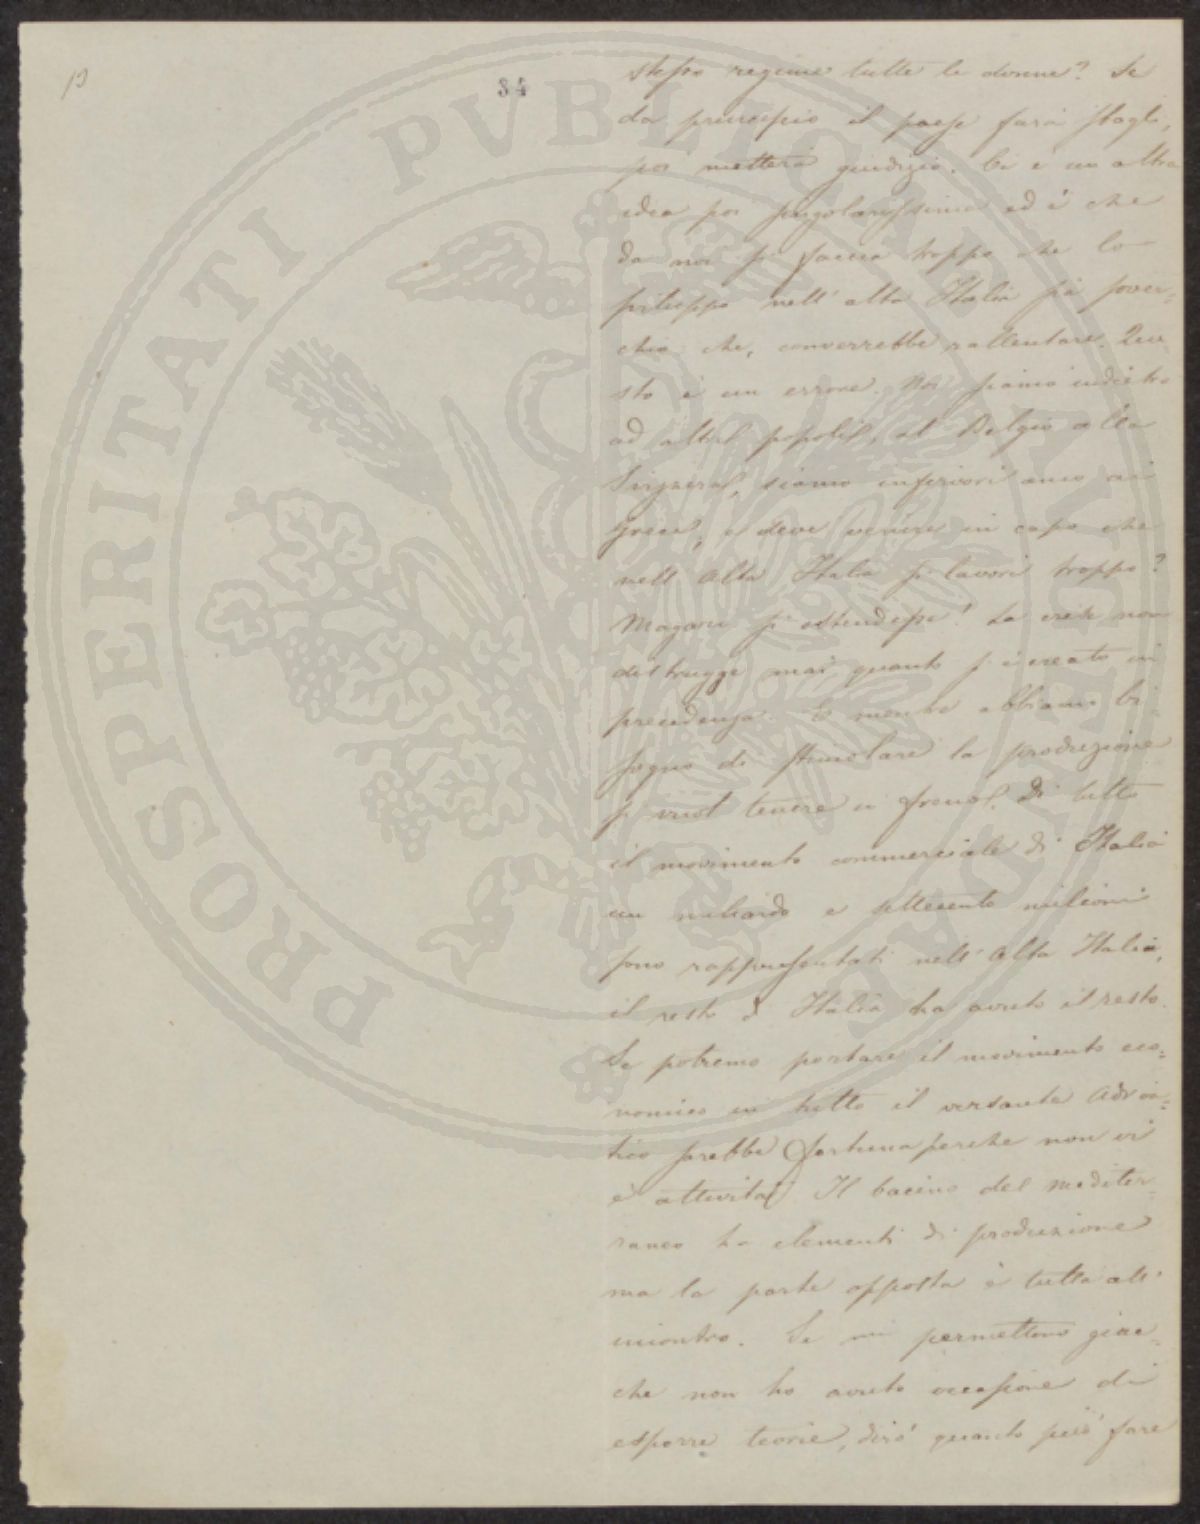 34
stesso regime tutte le donne? Se
da principio il paese farà sbagli,
poi metterà giudizio. Ci è un altra
idea poi singolarissima ed è che
da noi si faccia troppo che lo
sviluppo nell'alta Italia sia sover=
chio che, converrebbe rallentare. Que
sto è un errore. Noi siamo indietro
ad altri popoli, al Belgio alla
Svizzera, siamo inferiori anco ai
Greci, e deve venire in capo che
nell Alta Italia si lavori troppo?
Magari si estendesse! La crisi non
distrugge mai quanto si è creato in
precedenza. E mentre abbiamo bi
sogno di stimolare la produzione
si vuol tenere in freno. Di tutto
il movimento commerciale di Italia
un miliardo e settecento milioni
sono rappresentati nell'Alta Italia,
il resto d Italia ha avuto il resto.
Se potremo portare il movimento eco=
nomico in tutto il versante Adria=
tico sarebbe fortuna perche non vi
è attività. Il bacino del mediter
raneo ha elementi di produzione
ma la parte opposta è tutta all'
incontro. Se mi permettono giac
che non ho avuto occasione di
esporre teorie, dirò quanto può fare
PROSPERITATI PVBLICAE AVGENDAE